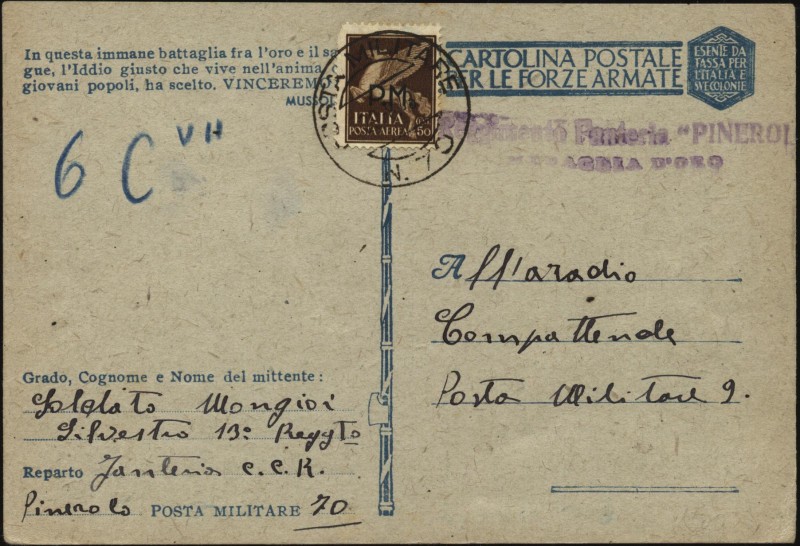 In questa immane battaglia fra l'oro e il sa
gue, l'Iddio giusto che vive nell'anima
giovani popoli, ha scelto. VINCEREM
MUSSOL
6 C VH
POSTA MILITARE
N. 70
P.M.
ITALIA
POSTA AEREA
50
CARTOLINA POSTALE
PER LE FORZE ARMATE
ESENTE DA
TASSA PER
L'ITALIA E
SVE COLONIE
Fanteria "PINEROL
D'ORO
All'aradio
Compattende
Posta Militare 9.
Grado, Cognome e Nome del mittente:
Soldato Mongioi
Silvestro 13º Reggto
Reparto Fanteria C.C.R.
Pinerolo POSTA MILITARE 70